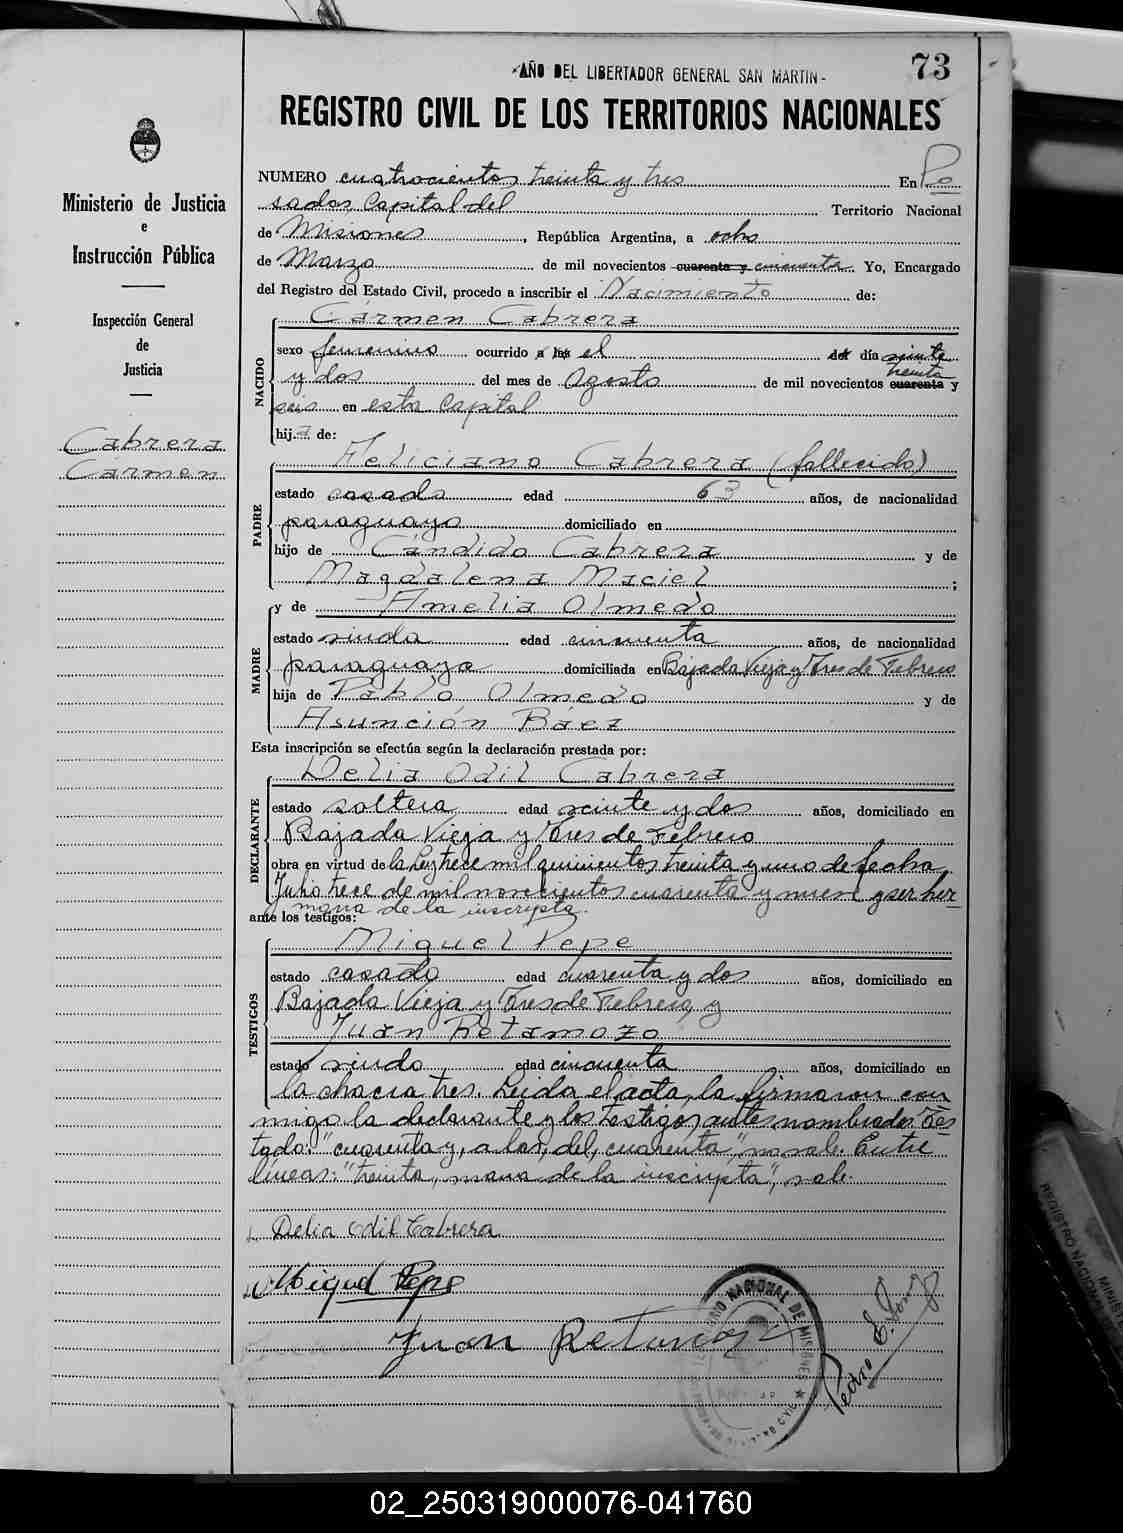 -AÑO DEL LIBERTADOR GENERAL SAN MARTIN-
73
REGISTRO CIVIL DE LOS TERRITORIOS NACIONALES
Ministerio de Justicia
e
Instrucción Pública
Inspección General
de
Justicia
Cabrera
Cármen
NUMERO cuatrocientos treinta y tres En Po
sadas, Capital del Territorio Nacional
de Misiones, República Argentina, a ocho
de Marzo de mil novecientos cuarenta y cincuenta. Yo, Encargado
del Registro del Estado Civil, procedo a inscribir el Nacimiento de:
NACIDO
Cármen Cabrera
sexo femenino ocurrido a las el del día veinte
treinta
y dos del mes de Agosto de mil novecientos cuarenta y
seis en esta Capital
hija de:
PADRE
Feliciano Cabrera (fallecido)
estado casado edad 63 años, de nacionalidad
paraguayo domiciliado en
hijo de Cándido Cabrera y de
Magdalena Maciel ;
MADRE
y de Amelia Olmedo
estado viuda edad cincuenta años, de nacionalidad
paraguaya domiciliada en Bajada Vieja y Tres de Febrero
hija de Pablo Olmedo y de
Asunción Báez
Esta inscripción se efectúa según la declaración prestada por:
DECLARANTE
Delia Odil Cabrera
estado soltera edad veinte y dos años, domiciliado en
Bajada Vieja y Tres de Febrero
obra en virtud de la Ley trece mil quinientos treinta y uno de fecha
Julio trece de mil novecientos cuarenta y nueve y ser her
mana de la inscripta.
ante los testigos:
TESTIGOS
Miguel Pepe
estado casado edad cuarenta y dos años, domiciliado en
Bajada Vieja y Tres de Febrero, y
Juan Retamozo
estado viudo edad cincuenta años, domiciliado en
la chacra tres. Leida el acta, la firmaron con
migo la declarante y los testigos antes nombrados. Tes
tado: "cuarenta y, a las, del, cuarenta", no vale. Entre
líneas: "treinta, mana de la inscripta", vale.
Delia Odil Cabrera
Miguel Pepe
Juan Retamozo
Pedro E.
NACIONAL DE MISIONES
REGISTRO NACIONAL
02_250319000076-041760